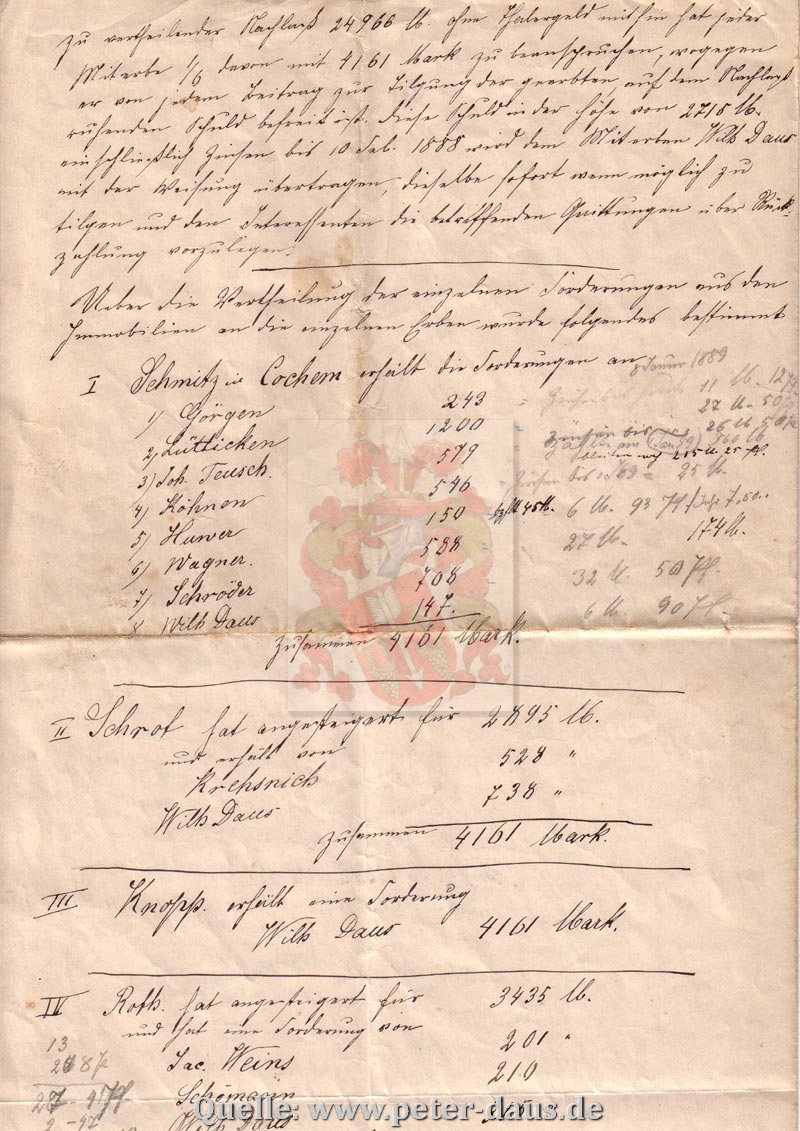 zu vertheilender Nachlaß 24966 M. ohne Thalergeld mithin hat jeder
Miterbe 1/6 davon mit 4161 Mark zu beanspruchen, wogegen
er von jedem Beitrag zur Tilgung der geerbten, auf dem Nachlaß
ruhenden Schuld befreit ist. Diese Schuld in der Höhe von 2715 M.
einschließlich Zinsen bis 10 Feb. 1888 wird dem Miterben Wilh Daus
mit der Weisung übertragen, dieselbe sofort wenn möglich zu
tilgen und den Interessenten die betreffenden Quittungen über Rück-
zahlung vorzulegen.
Ueber die Vertheilung der einzelnen Forderungen aus den
Immobilien an die einzelnen Erben wurde folgendes bestimmt
I Schmitz in Cochem erhält die Forderungen an
8 Januar 1889
1) Görgen 243 11 M.
2) Lütticken 1200 27 M - 50
3) Joh. Teusch. 579 26 M 50
bleiben noch 215 M 25 Pf.
4) Köhnen 546 25 M.
5) Huwer 150 45 M. 6 M. 93 Pf 7,50
6) Wagner. 588 27 M. 174 M.
7) Schröder 708 32 M. 50 Pf.
8 Wilh Daus 147. 6 M. 90 Pf.
Zusammen 4161 Mark.
II Schrof hat angesteigert für 2895 M.
und erhält von
Krehsnich 528 "
Wilh Daus 738 "
Zusammen 4161 Mark.
III Knopp. erhält eine Forderung
Wilh Daus 4161 Mark.
IV Roth. hat angesteigert für 3435 M.
und hat eine Forderung von
13
Jac. Weins 201 "
Schömann 210
27 - 47
2 - 47
Wilh Daus
Quelle: www.peter-daus.de